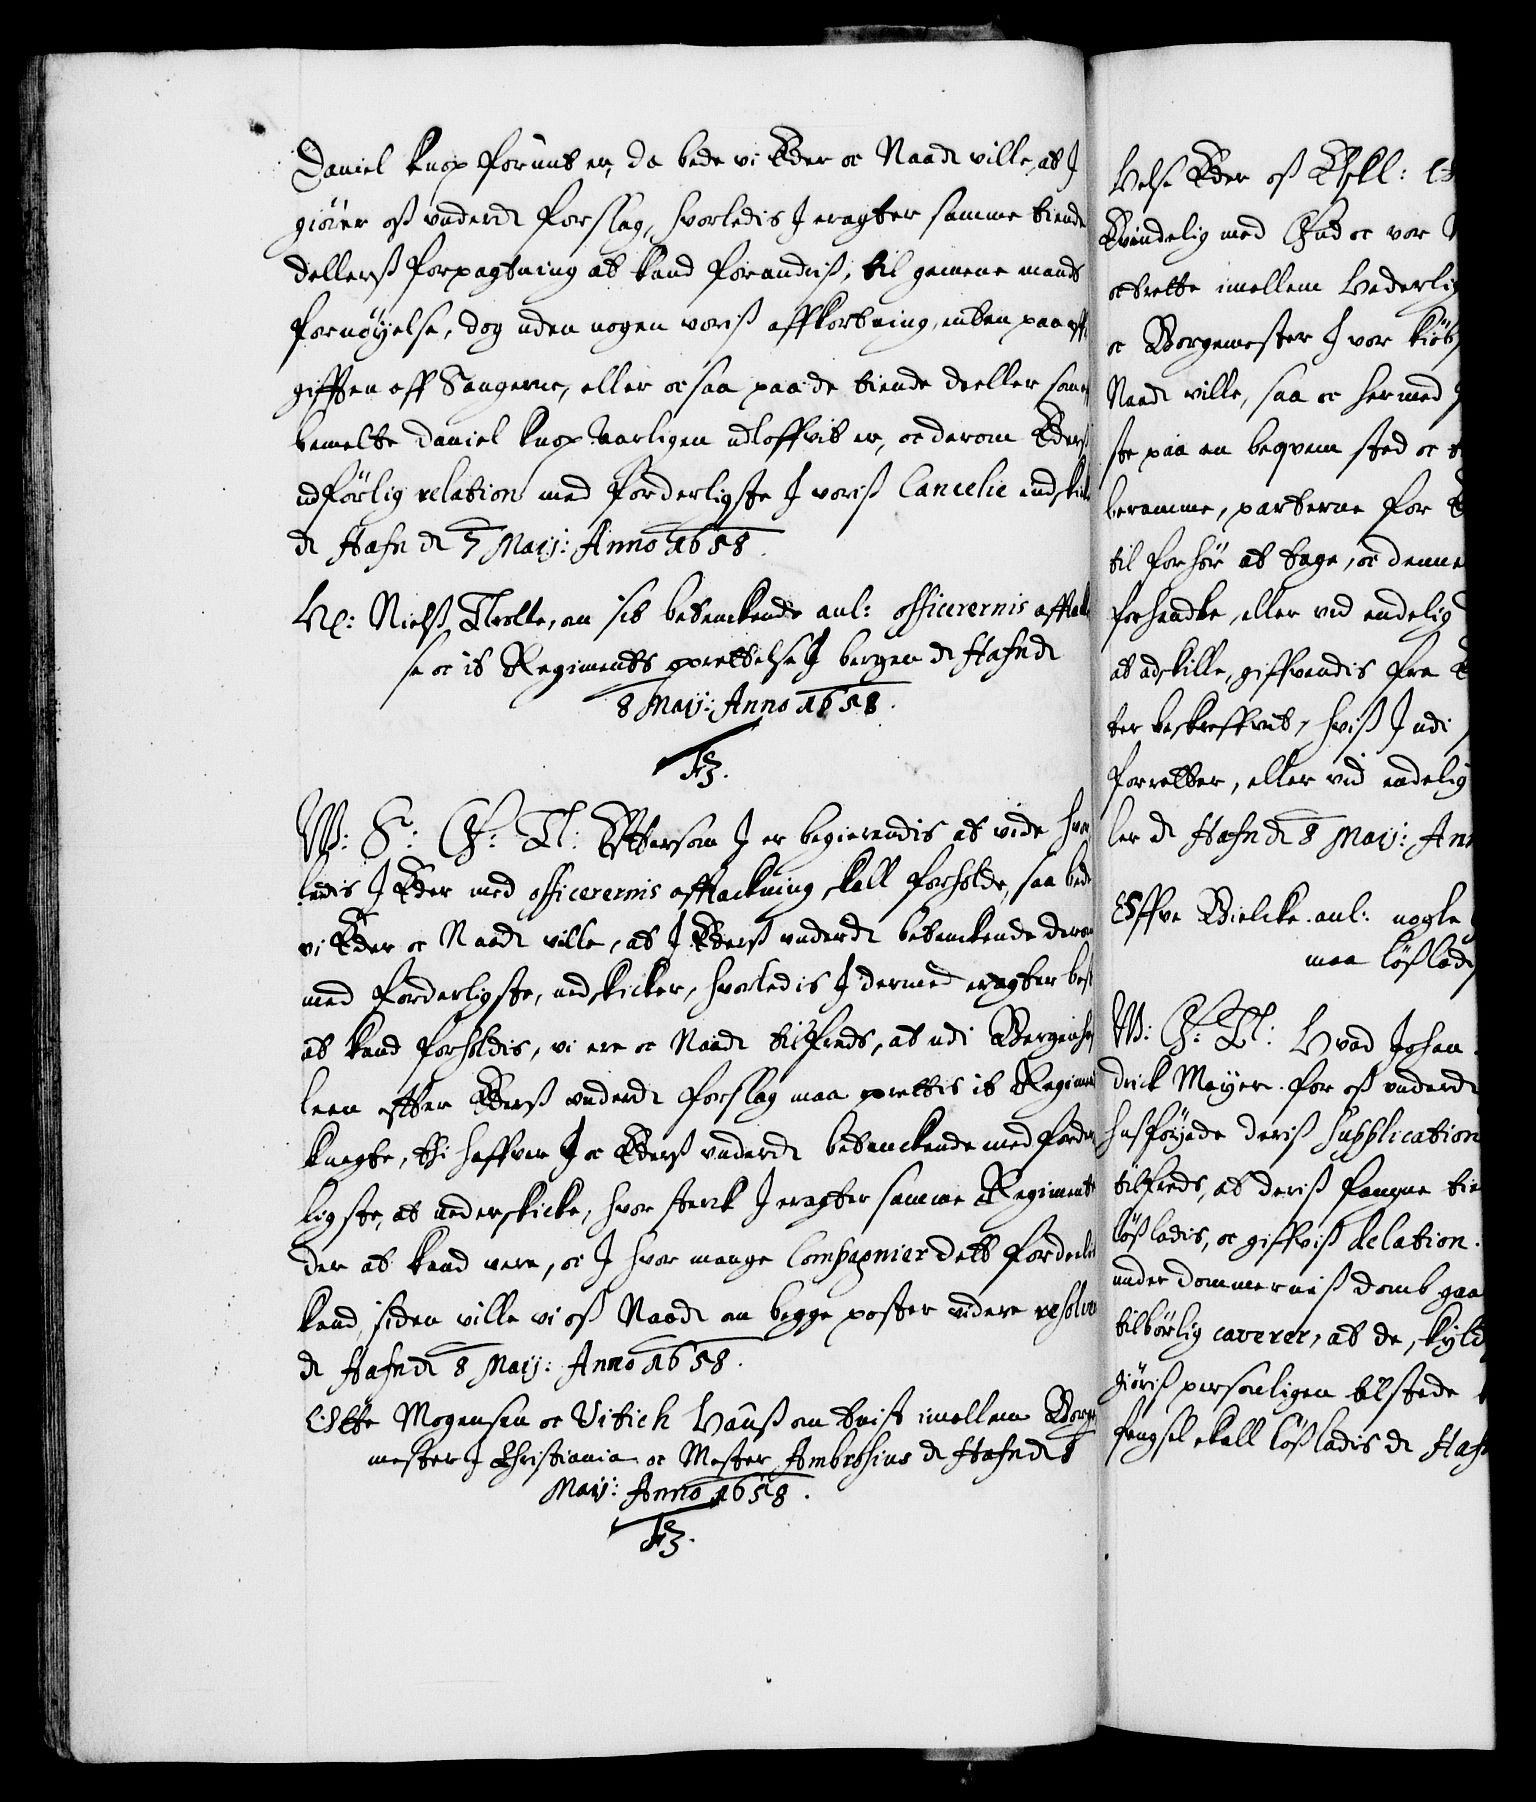 Daniel Knox forundt er, da bede vi Eder oc Naadl ville, at J
giörer oß underdl forslag, hvorledis J eragter samme tiende
dellerß forpagtning at kand forandriß, til gemene mands
fornöyelse, dog uden nogen voriß affkortning, enten paa aff
gifften off Saugerne, eller oc saa paa de tiende deeller som
bemelte Daniel Knox aarligen udloffvit er, oc derom Ederß
udförlig relation med forderligste J voriß Cancelie indskicke
dl Hafn dl 7 Maij: Anno 1658.
Hr: Nielß Trolle, om sit betenckende anl: officerernis afftack
se oc it Regiments oprettelse J bergen dl Hafn dl
8 Maij: Anno 1658.
F3.
W: S: G: T: Efftersom J er begierendis at vide hvor
ledis J Eder med officerernis afftackning skall forholde, saa bede
vi Eder oc Naadl ville, at J Ederß underdl betenckende derom
med forderligste, nedskicker, hvorledis J dermed eragter best
at kand forholdis, vi ere oc Naadl tilfreds, at udi Bergenhuß
leen effter Ederß underdl forslag maa oprettis it Regiment
knegte, thi haffver J oc Ederß underdl betenckende med forder
ligste, at nederskicke, hvor sterck J eragter samme Regiment
der at kand vere, oc J hvor mange Compagnier dett fordeelis
kand, siden ville vi oß Naadl om begge poster videre resolvere
dl Hafn dl 8 Maij: Anno 1658.
Otte Mogensen oc Vitich Hauß om tvist imellem Borge
mester J Christiania oc Mester Ambrosius dl Hafn dl 8
Maij: Anno 1658.
F3.
Helse Eder oß Elskl:
Kiendelig med Gud oc vor
oc trette imellem Hederlig
oc Borgemester J vor kiöb
Naadl ville, saa oc hermed
ste paa en beqvem sted oc
beramme, parterne for E
til forhör at tage, oc denne
forhandle, eller ved endelig
at adskille, giffvendis fra E
ter beskreffvit, hviß J udi
forretter, eller ved endelig
ler dl Hafn dl 8 Maij: Ann
Offve Bielcke anl: nogle
maa lößladis
W: G: T: Hvad Johan
drick Meyer for oß underdl
hosföyede deriß Supplication
tilfreds, at deriß fangne tie
lößladis, oc giffviß Relation
under dommerniß domb gaa
tilbörlig caverer, at de, skyld
giöriß personligen tilstede
fengsel skall lößladis dl Hafn